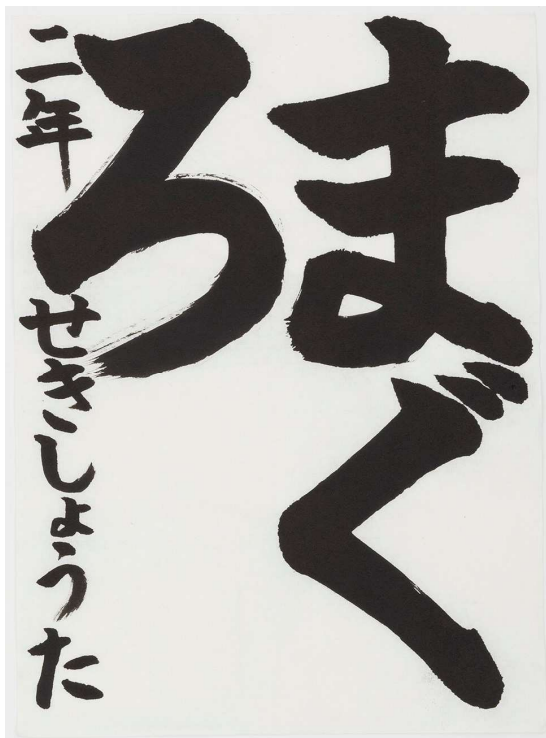 まぐ
ろ
二年 せきしょうた